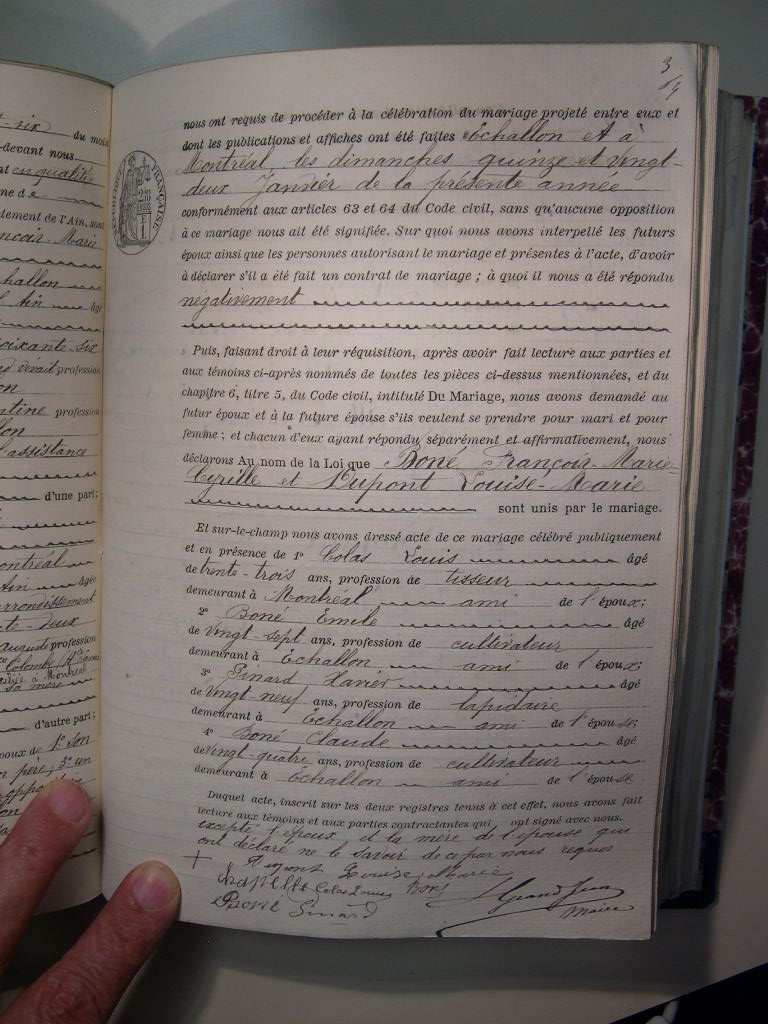 t-six du mois
-devant nous
nt en qualité
ne de
tement de l'Ain, sont
ncois-Marie
challon
l'Ain âgé
oixante-six
profession
on
ntine profession
lon
l assistance
d'une part;
ontréal
Ain âgée
rrondissement
te-deux
auguste profession
Colombe
à Montréal
sa mère
d'autre part;
poux de 1° son
n père; 3° son
3
RÉPUBLIQUE FRANÇAISE
nous ont requis de procéder à la célébration du mariage projeté entre eux et
dont les publications et affiches ont été faites Echallon et à
Montréal les dimanches quinze et vingt-
deux Janvier de la présente année
conformément aux articles 63 et 64 du Code civil, sans qu'aucune opposition
à ce mariage nous ait été signifiée. Sur quoi nous avons interpellé les futurs
époux ainsi que les personnes autorisant le mariage et présentes à l'acte, d'avoir
à déclarer s'il a été fait un contrat de mariage ; à quoi il nous a été répondu
negativement
Puis, faisant droit à leur réquisition, après avoir fait lecture aux parties et
aux témoins ci-après nommés de toutes les pièces ci-dessus mentionnées, et du
chapitre 6, titre 5, du Code civil, intitulé Du Mariage, nous avons demandé au
futur époux et à la future épouse s'ils veulent se prendre pour mari et pour
femme ; et chacun d'eux ayant répondu séparément et affirmativement, nous
déclarons Au nom de la Loi que Boné François-Marie
Cyrille et Dupont Louise-Marie
sont unis par le mariage.
Et sur-le-champ nous avons dressé acte de ce mariage célébré publiquement
et en présence de 1° Colas Louis âgé
de trente-trois ans, profession de tisseur
demeurant à Montréal ami de l'époux;
2° Boné Emile âgé
de vingt-sept ans, profession de cultivateur
demeurant à Echallon ami de l'époux;
3° Pinard Xavier âgé
de vingt neuf ans, profession de lapidaire
demeurant à Echallon ami de l'épouse;
4° Boné Claude âgé
de vingt-quatre ans, profession de cultivateur
demeurant à Echallon ami de l'épouse
Duquel acte, inscrit sur les deux registres tenus à cet effet, nous avons fait
lecture aux témoins et aux parties contractantes qui ont signé avec nous.
excepté l'époux et la mère de l'épouse qui
ont déclaré ne le savoir de ce par nous requis
Dupont Louise Marie
Chapelle Colas Louis Boné Grand Jean
Boné Pinard Maire